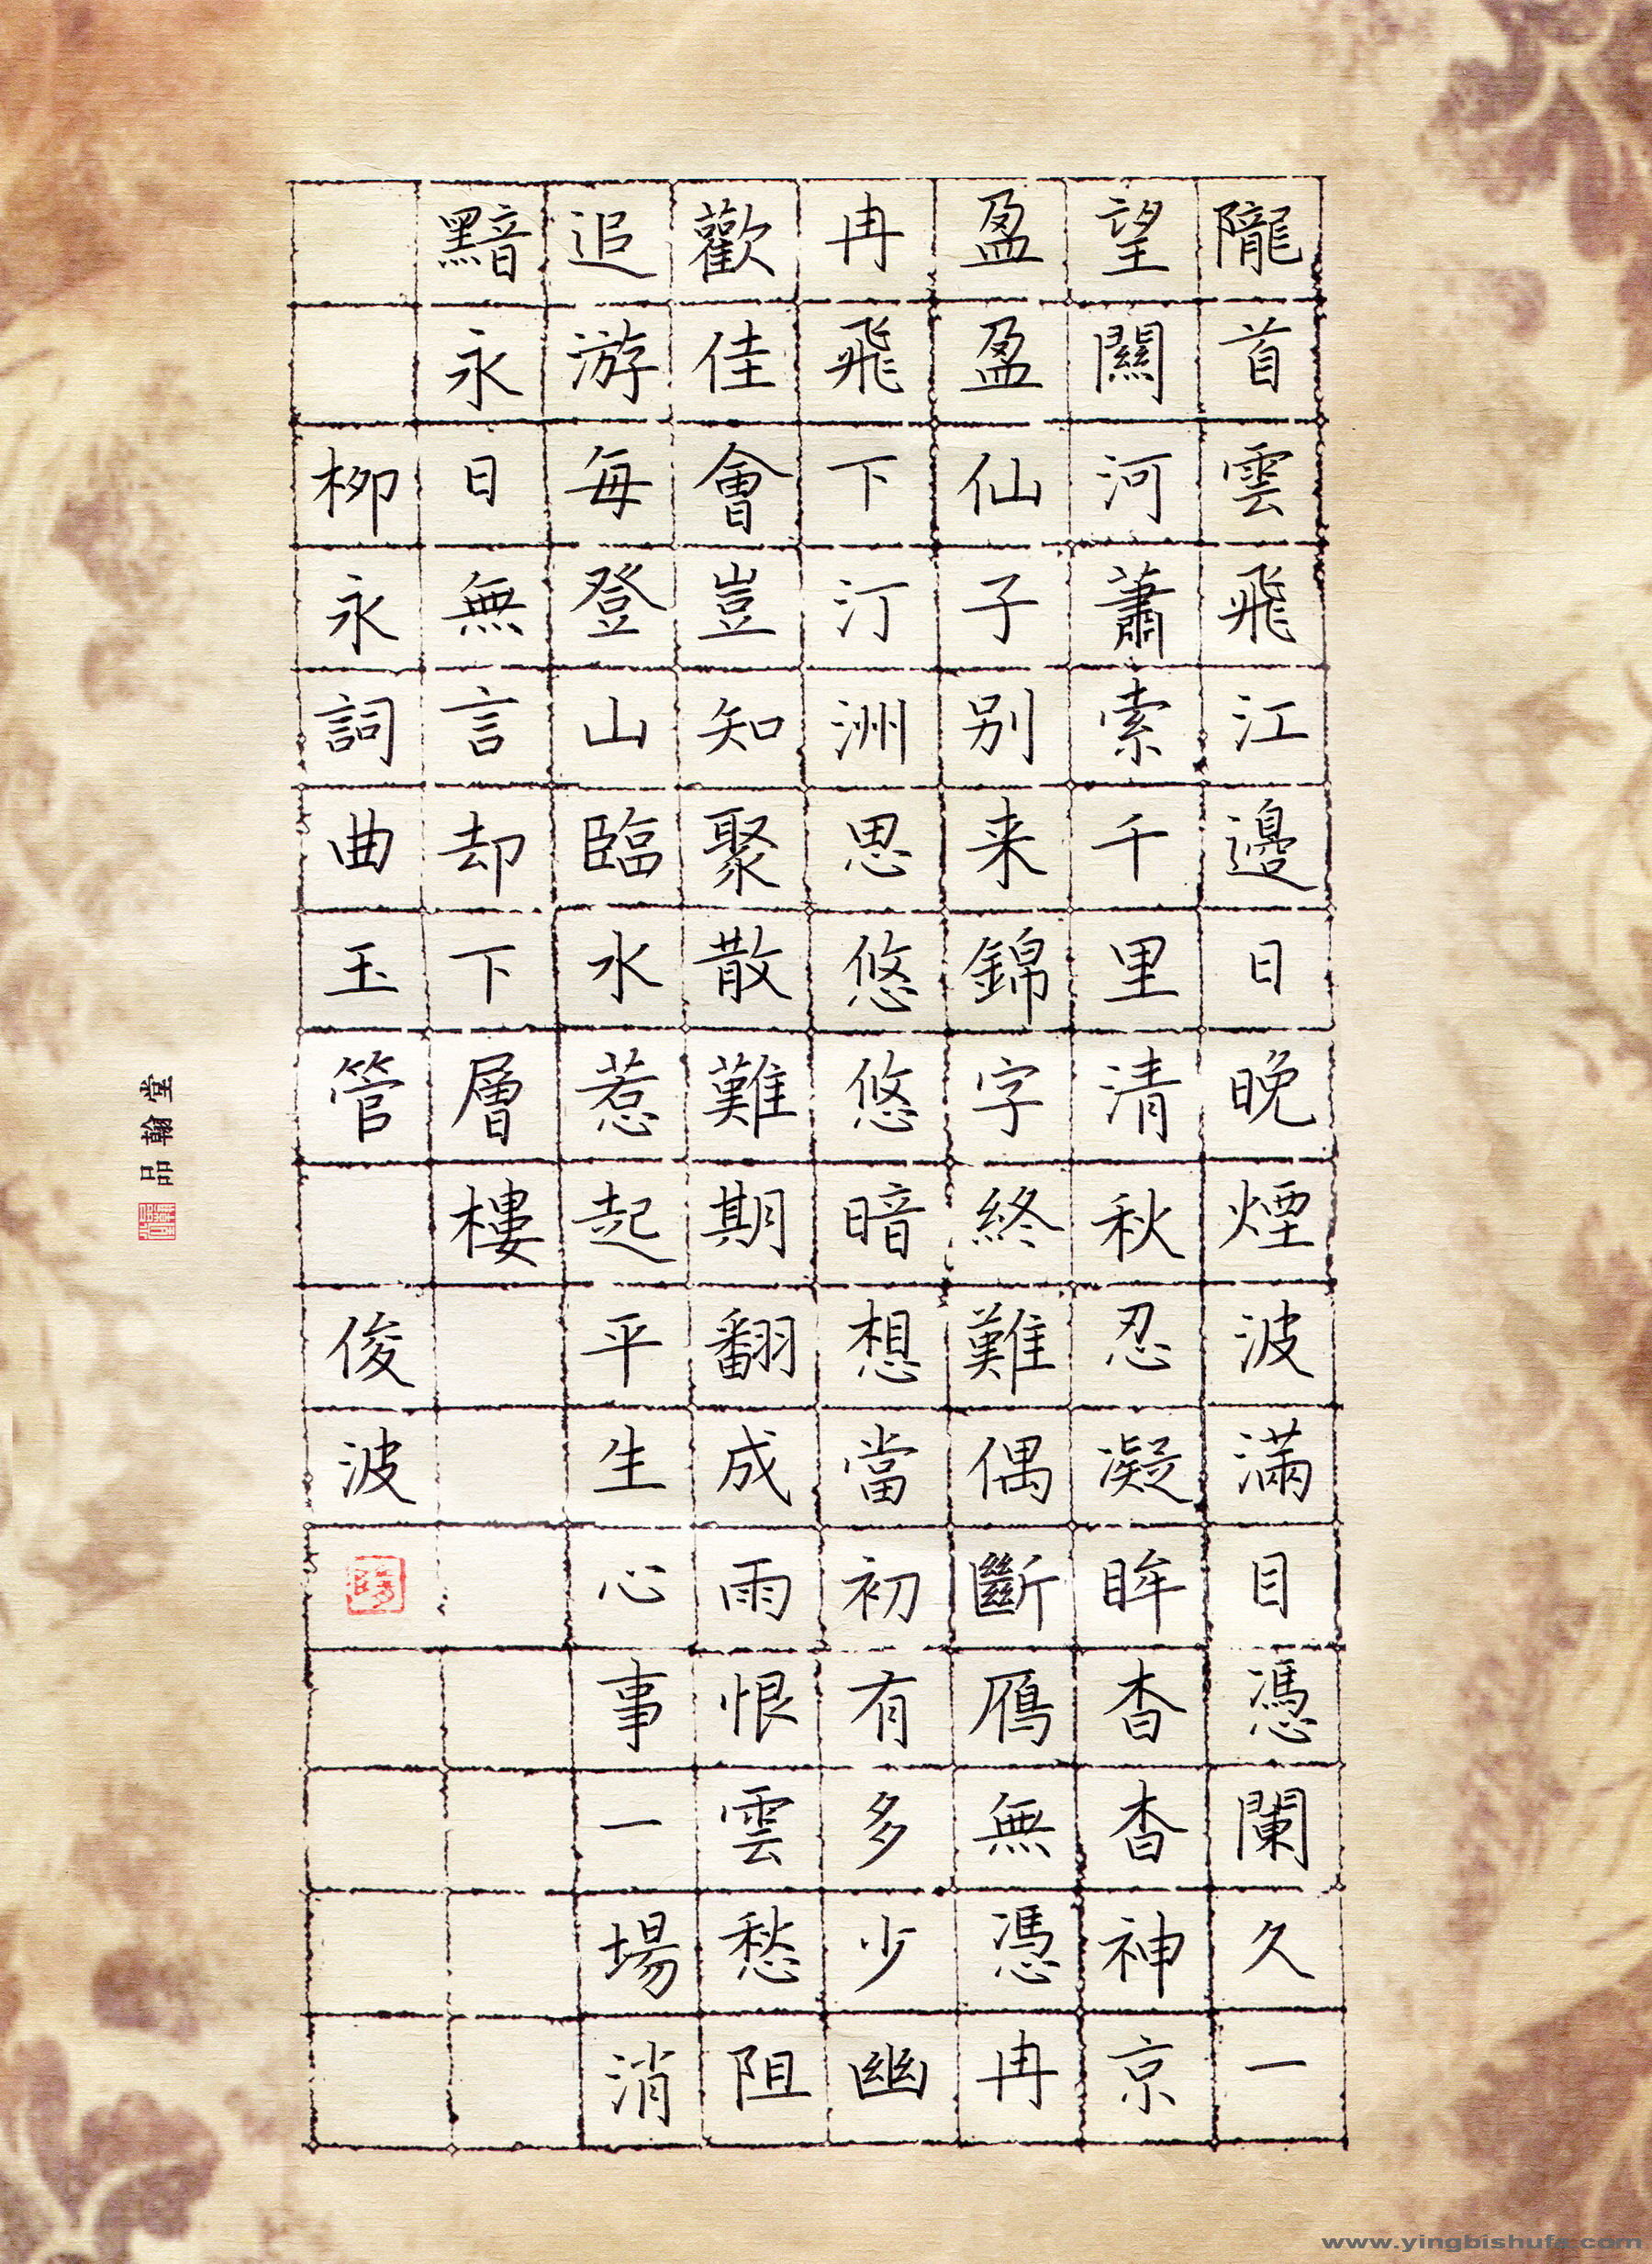 隴首雲飛江邊日晚煙波滿目憑闌久一
望關河蕭索千里清秋忍凝眸杳杳神京
盈盈仙子别来錦字終難偶斷鴈無憑冉
冉飛下汀洲思悠悠暗想當初有多少幽
歡佳會豈知聚散難期翻成雨恨雲愁阻
追游每登山臨水惹起平生心事一場消
黯永日無言却下層樓
柳永詞曲玉管 俊波
品翰堂
www.yingbishufa.com